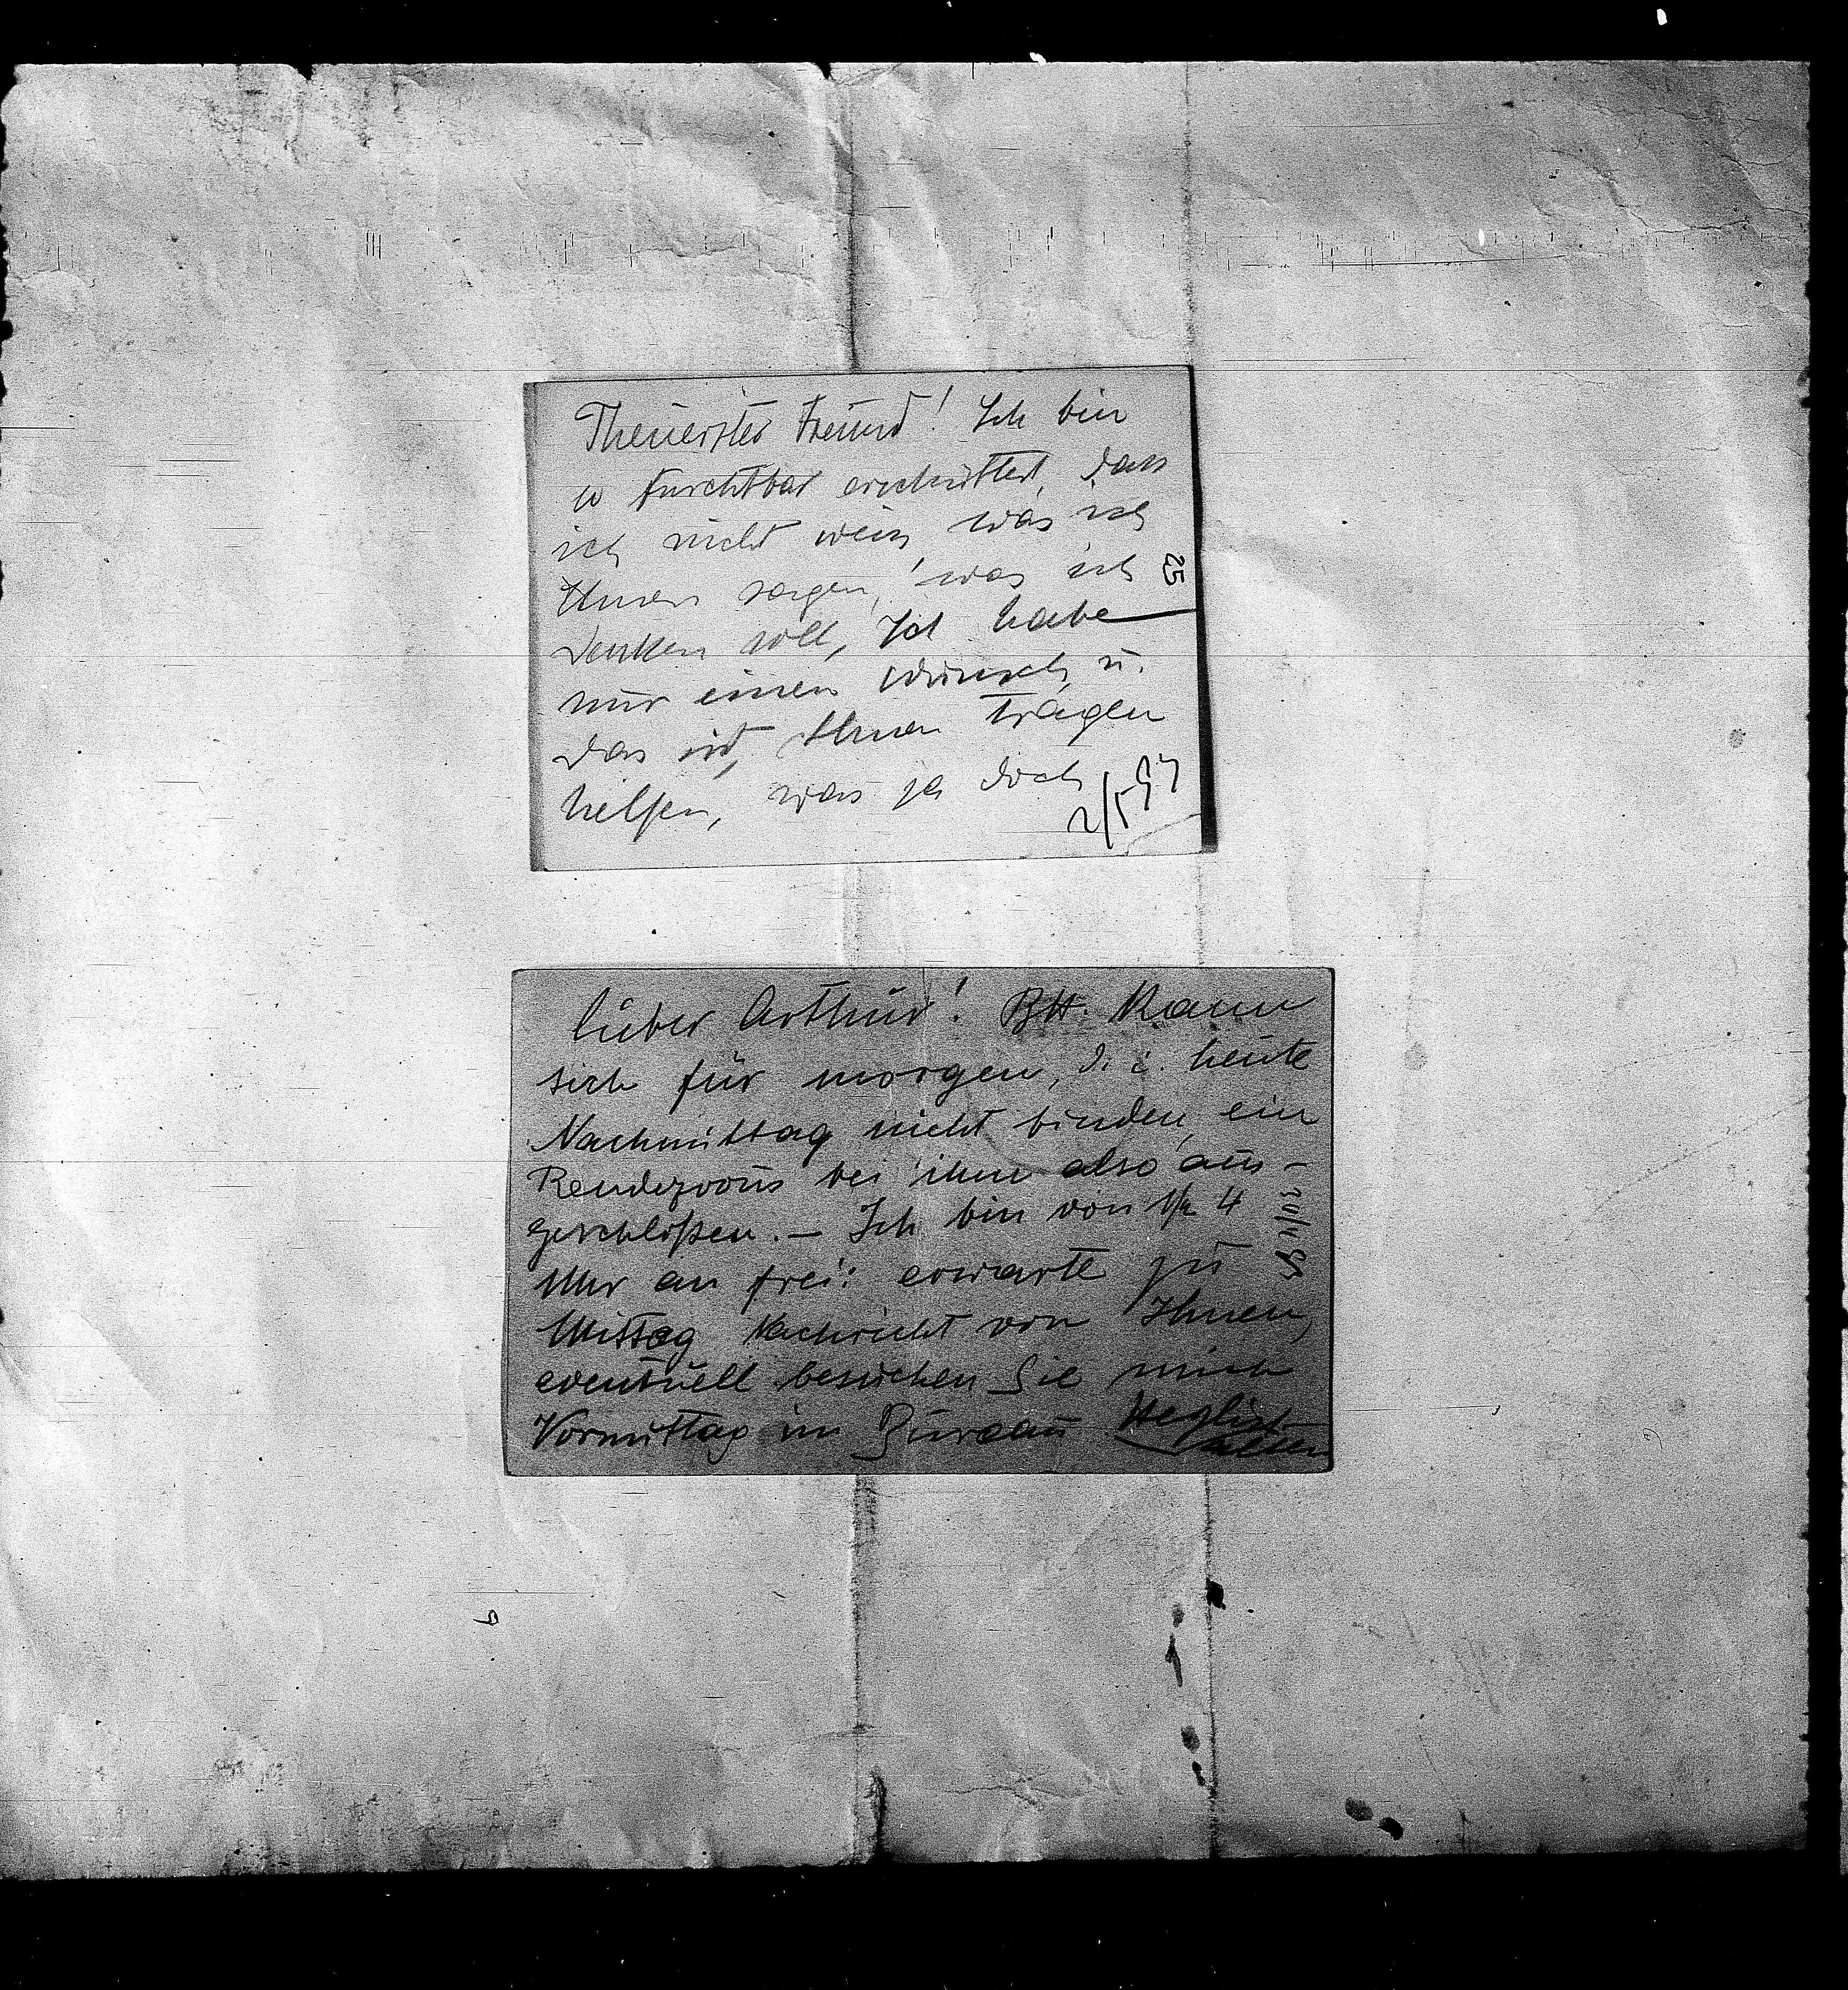 Theuerster Freund! Ich bin
so furchtbar erschüttert, dass
ich nicht weiss, was ich
Ihnen sagen, was ich
25
denken soll, Ich habe
nur einen Wunsch u.
das ist, Ihnen tragen
helfen, was ja doch
2/5 97
lieber Arthur! BH. kann
sich für morgen, d. i. heute
Nachmittag nicht binden, ein
Rendezvous bei ihm also aus-
geschloßen. – Ich bin von 1/2 4
Uhr an frei: erwarte zu
Mittag Nachricht von Ihnen,
eventuell besuchen Sie mich
Vormittag im Bureau Herzlichst
Salten